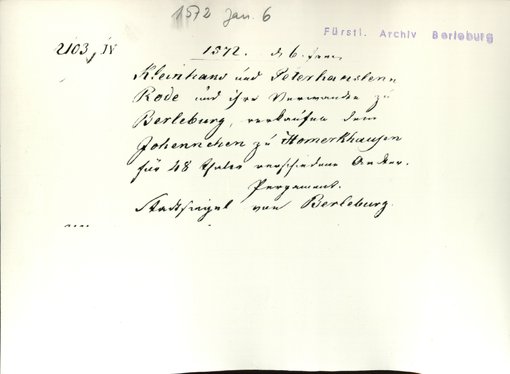 1572 Jan. 6
Fürstl. Archiv Berleburg
2103, IV
1572. d. 6. Jan.
Kleinhans und Peterhans
Rode und ihre Verwandte zu
Berleburg, verkaufen dem
Johennchen zu Homerkhausen
für 48 Thaler verschiedene Aecker.
Pergament.
Stadtsiegel von Berleburg.